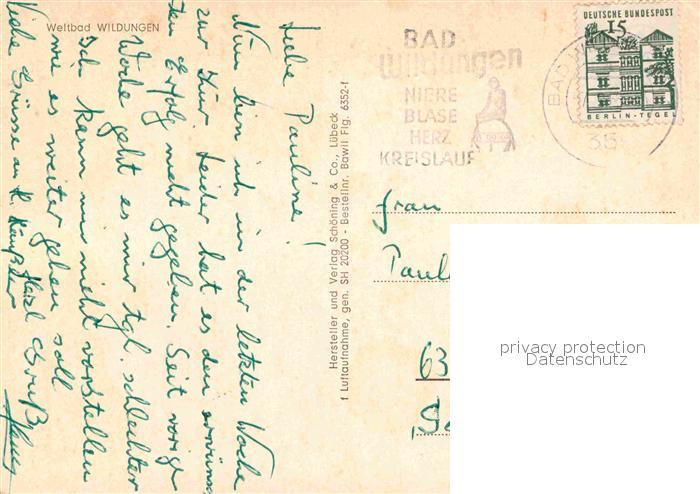 Weltbad WILDUNGEN
Liebe Pauline!
Nun bin ich in der letzten Woche
zur Kur. Leider hat es den erwünsch
ten Erfolg nicht gegeben. Seit vorige
Woche geht es mir tgl. schlechter
Ich kann mir nicht vorstellen
wie es weiter gehen soll
Viele Grüsse an
Herzl Gruß
Hersteller und Verlag Schöning & Co., Lübeck
† Luftaufnahme, gen. SH 20200 - Bestellnr. Bawil Flg. 6352-f
BAD
Wildungen
NIERE
BLASE
HERZ
KREISLAUF
BAD
35
DEUTSCHE BUNDESPOST
15
BERLIN-TEGEL
Frau
Paul
63
privacy protection
Datenschutz